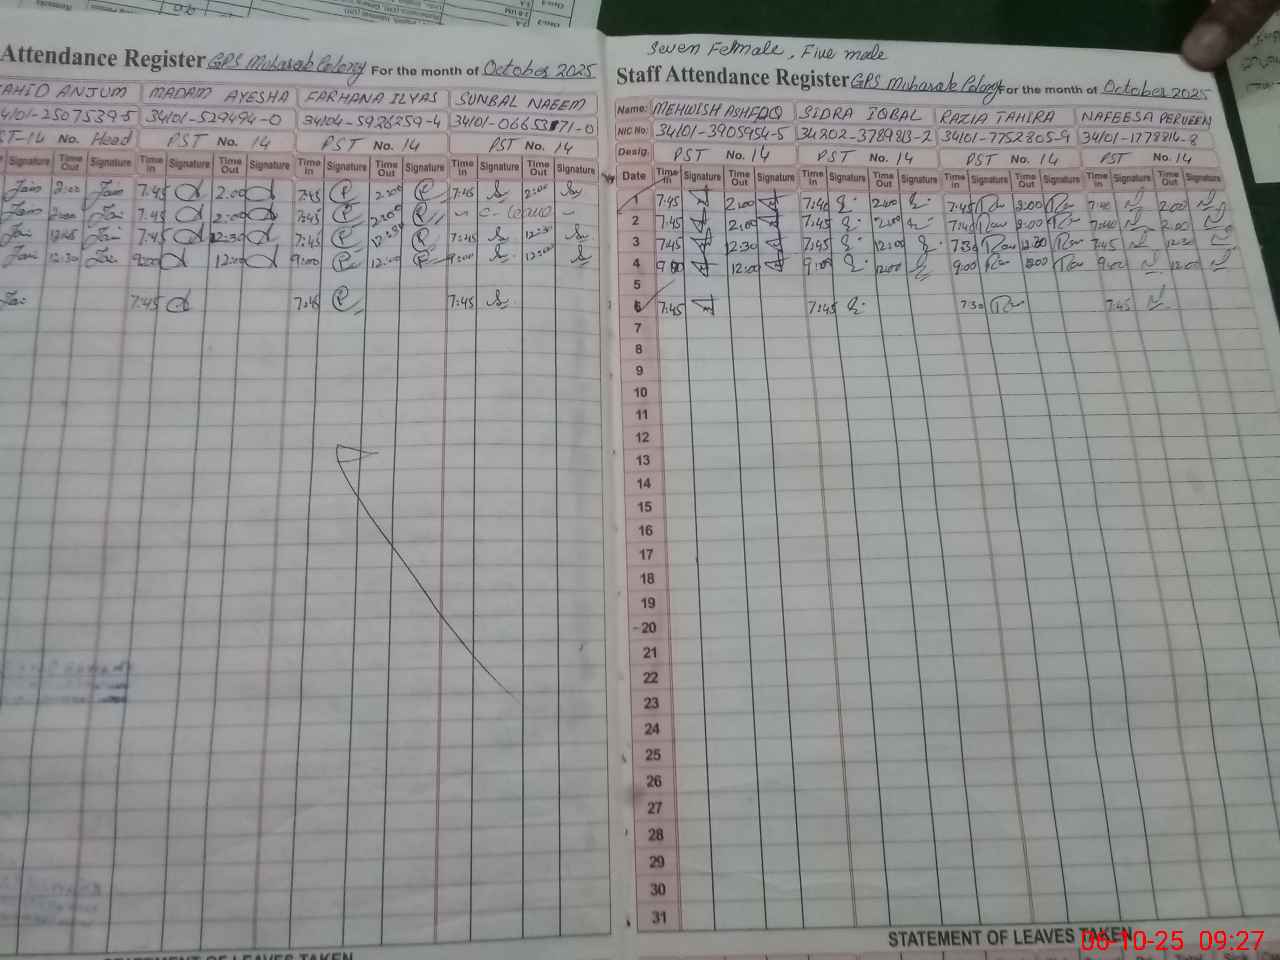 Attendance Register GPS Mubarak Colony For the month of October 2025
AHID ANJUM MADAM AYESHA FARHANA ILYAS SUNBAL NAEEM
34101-529494-0 34104-5926259-4
ST-14 No. Head PST No. 14 PST No. 14 PST No. 14
Signature Time Out Signature Time In Signature Time Out Signature Time In Signature Time Out Signature Time In Signature Time Out Signature
2:00 7:45 2:00 7:45 2:00 7:45 2:00
2:00 7:45 2:00 7:45 2:00 - C-leave -
12:45 7:45 12:30 7:45 12:30 7:45 12:30
12:30 9:00 12:00 9:00 12:00 9:00 12:00
7:45 7:45 7:45
Seven Female, Five male
Staff Attendance Register GPS Mubarak Colony For the month of October 2025
Name: MEHWISH ASHFAQ SIDRA IQBAL RAZIA TAHIRA NAFEESA PERVEEN
NIC No. 34101-3905954-5 34202-3789313-2 34101-7752805-9 34101-1778814-8
Desig. PST No. 14 PST No. 14 PST No. 14 PST No. 14
Date Time In Signature Time Out Signature Time In Signature Time Out Signature Time In Signature Time Out Signature Time In Signature Time Out Signature
1 7:45 2:00 7:40 2:00 7:45 2:00 7:40 2:00
2 7:45 2:00 7:45 2:00 7:40 2:00 7:40 2:00
3 7:45 12:30 7:45 12:00 7:30 12:30 7:45 12:30
4 9:00 12:00 9:00 12:00 9:00 12:00 9:00 12:00
5
6 7:45 7:45 7:30 7:45
7
8
9
10
11
12
13
14
15
16
17
18
19
20
21
22
23
24
25
26
27
28
29
30
31
STATEMENT OF LEAVES TAKEN
STATEMENT OF LEAVES TAKEN
06-10-25 09:27